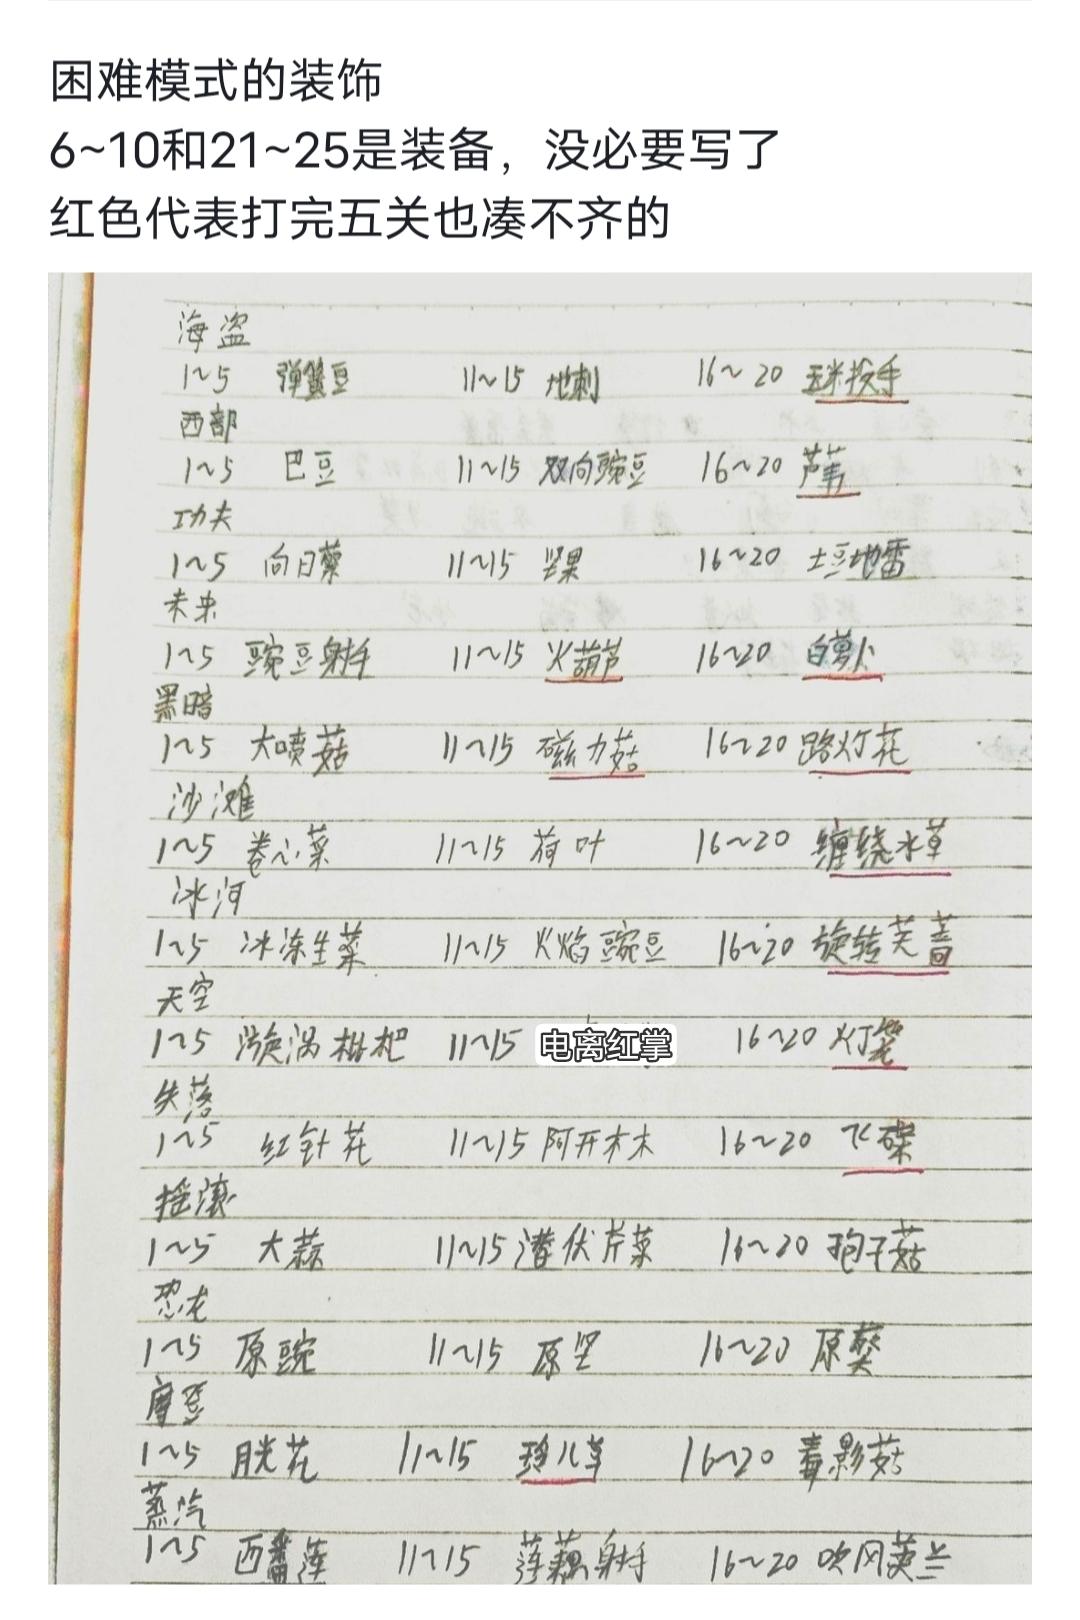 困难模式的装饰
6~10和21~25是装备，没必要写了
红色代表打完五关也凑不齐的
海盗
1~5 弹簧豆 11~15 地刺 16~20 玉米投手
西部
1~5 巴豆 11~15 双向豌豆 16~20 芦苇
功夫
1~5 向日葵 11~15 坚果 16~20 土豆地雷
未来
1~5 豌豆射手 11~15 火葫芦 16~20 白萝卜
黑暗
1~5 大喷菇 11~15 磁力菇 16~20 路灯花
沙滩
1~5 卷心菜 11~15 荷叶 16~20 缠绕水草
冰河
1~5 冰冻生菜 11~15 火焰豌豆 16~20 旋转芜菁
天空
1~5 漩涡枇杷 11~15 电离红掌 16~20 灯笼
失落
1~5 红针花 11~15 阿开木木 16~20 飞碟
摇滚
1~5 大蒜 11~15 潜伏芹菜 16~20 孢子菇
恐龙
1~5 原豌 11~15 原坚 16~20 原葵
摩登
1~5 胱花 11~15 猫儿草 16~20 毒影菇
蒸汽
1~5 西番莲 11~15 莲藕射手 16~20 吹风荚兰